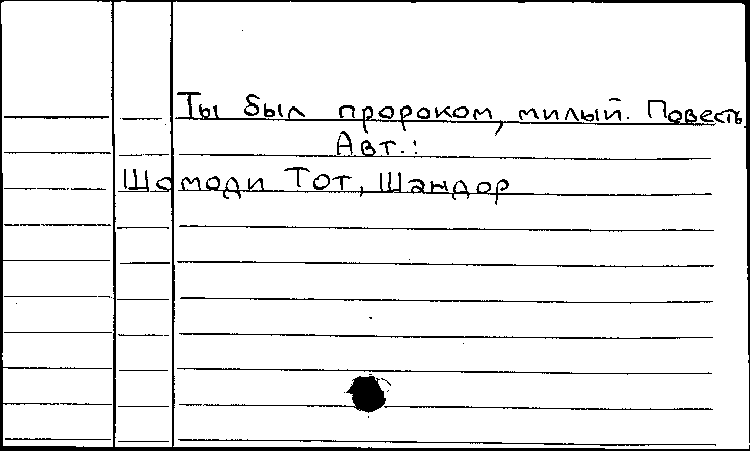 Ты был пророком, милый. Повесть.
Авт.:
Шомоди Тот, Шандор